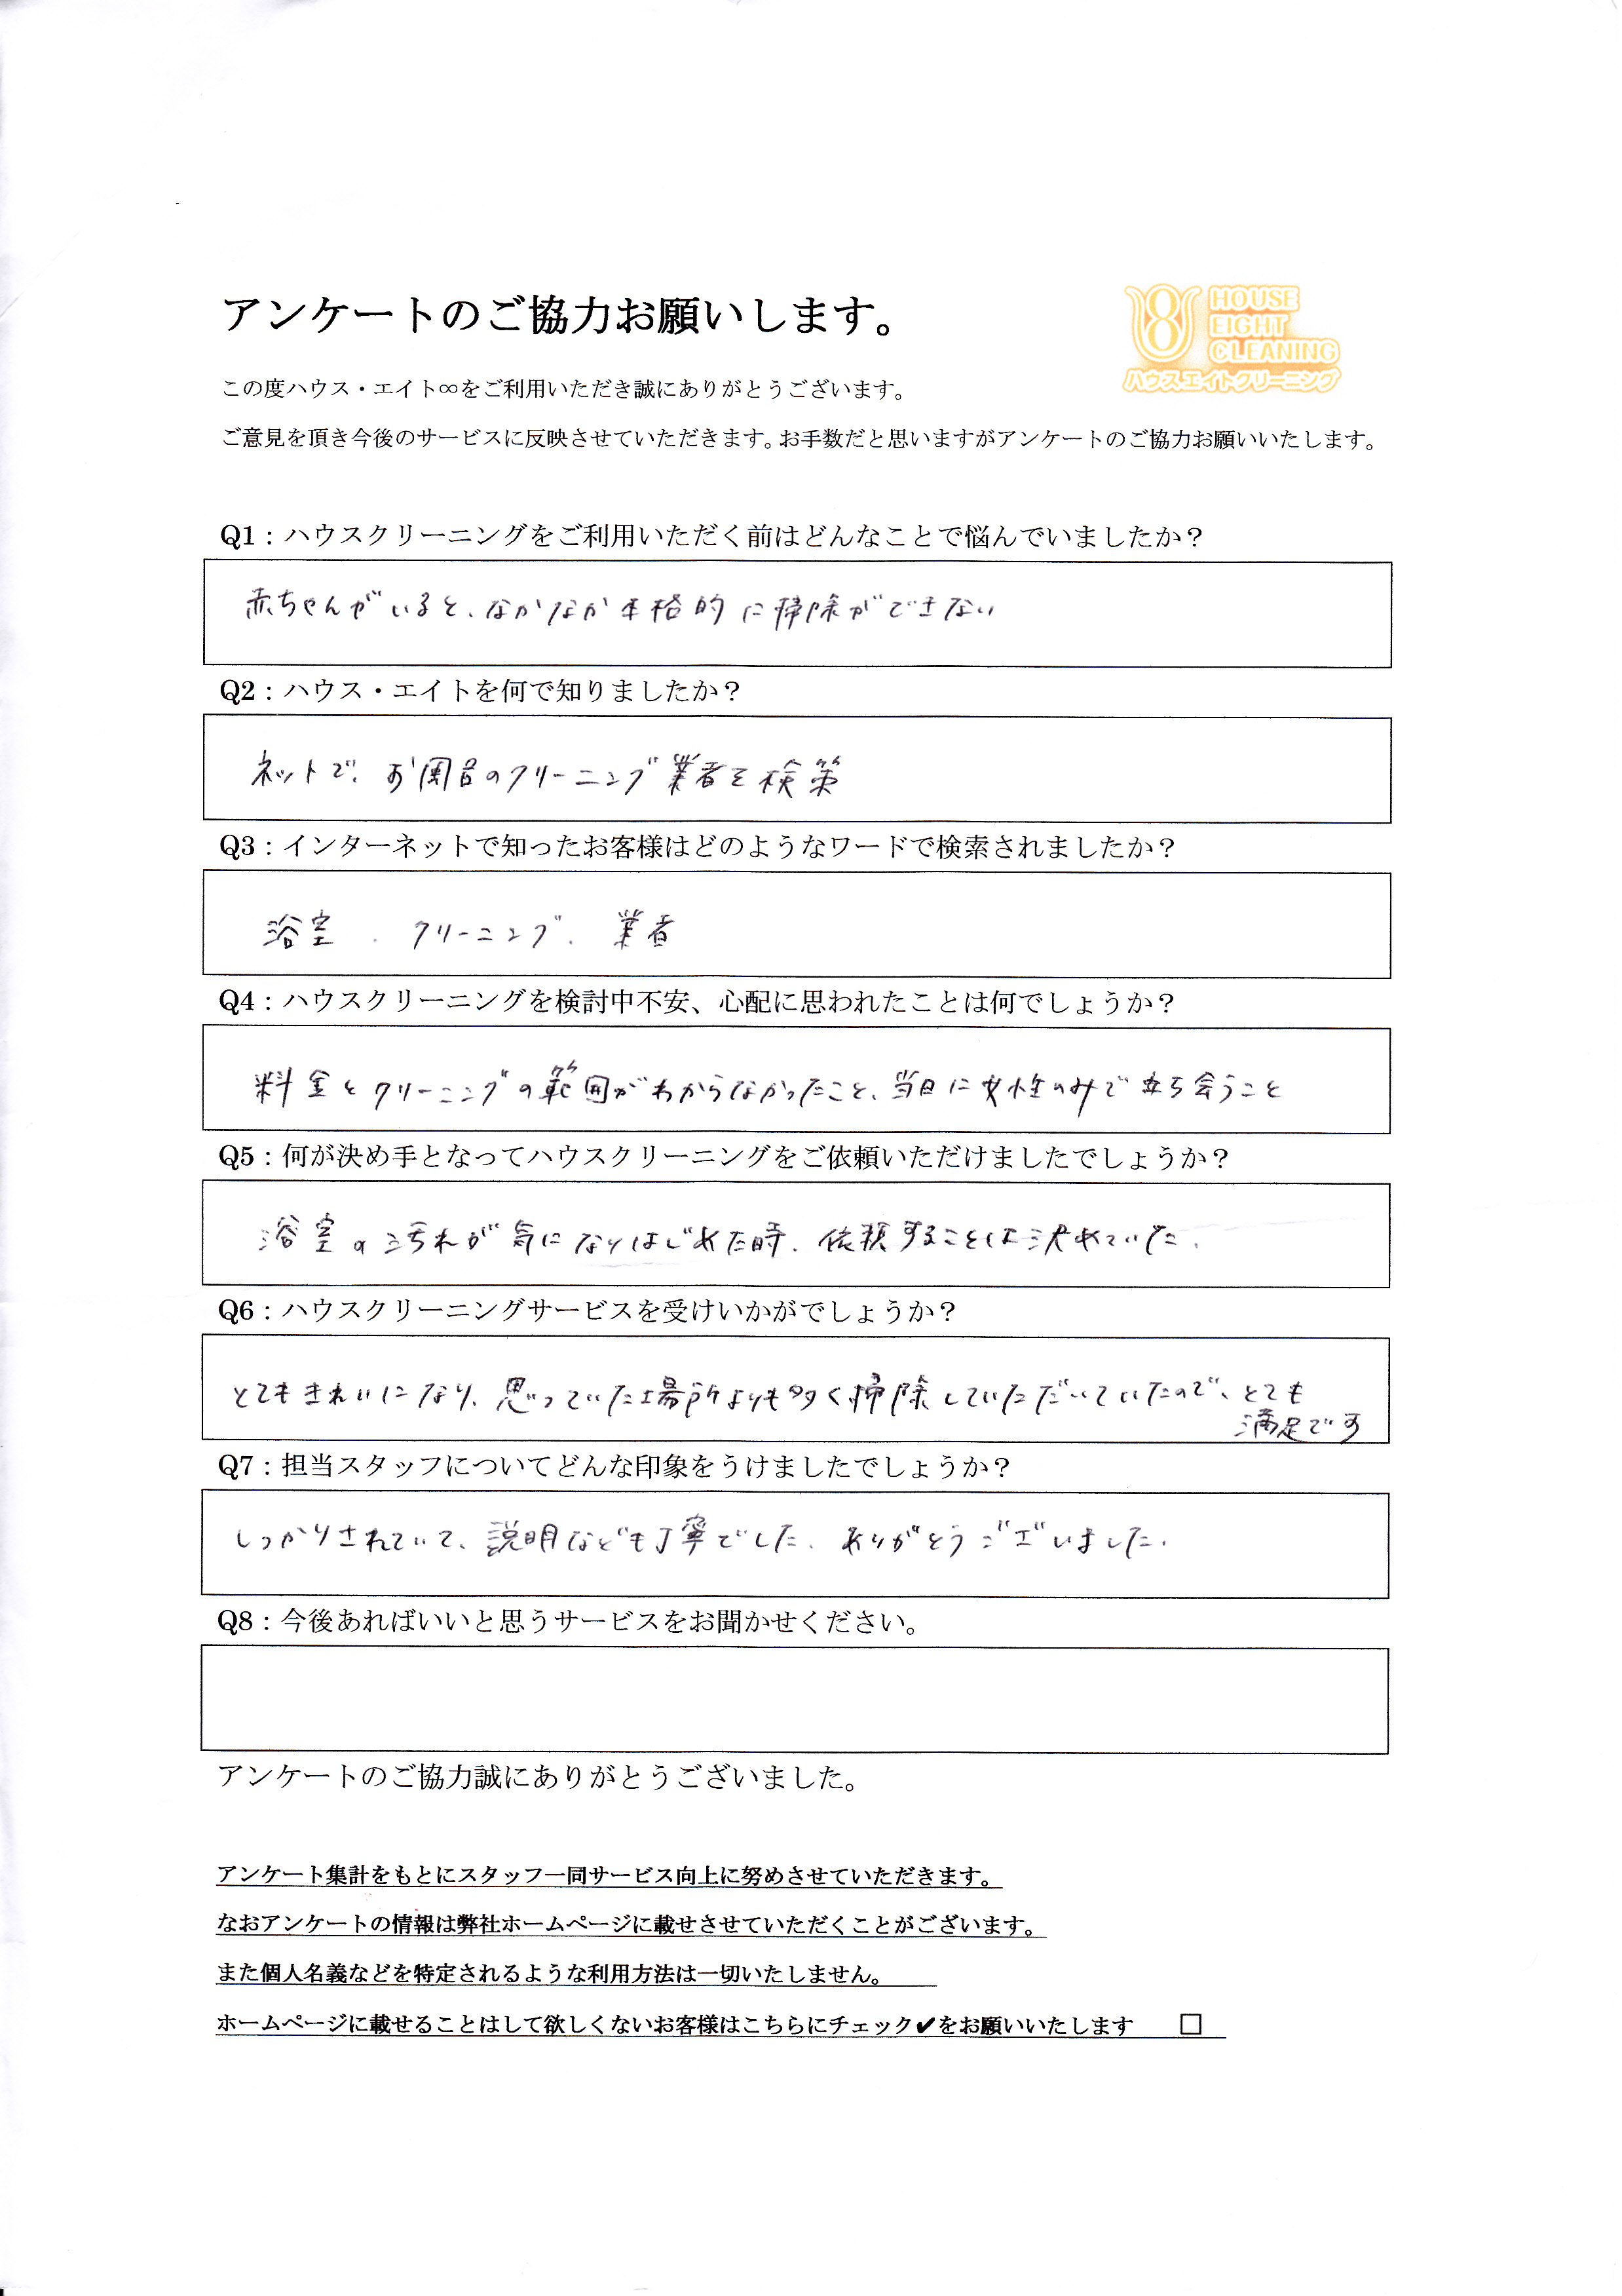 アンケートのご協力お願いします。
HOUSE
EIGHT
CLEANING
ハウスエイトクリーニング
この度ハウス・エイト∞をご利用いただき誠にありがとうございます。
ご意見を頂き今後のサービスに反映させていただきます。お手数だと思いますがアンケートのご協力お願いいたします。
Q1：ハウスクリーニングをご利用いただく前はどんなことで悩んでいましたか？
赤ちゃんがいると、なかなか本格的に掃除ができない
Q2：ハウス・エイトを何で知りましたか？
ネットで、お風呂のクリーニング業者を検索
Q3：インターネットで知ったお客様はどのようなワードで検索されましたか？
浴室、クリーニング、業者
Q4：ハウスクリーニングを検討中不安、心配に思われたことは何でしょうか？
料金とクリーニングの範囲がわからなかったこと、当日に女性のみで立ち会うこと
Q5：何が決め手となってハウスクリーニングをご依頼いただけましたでしょうか？
浴室の汚れが気になりはじめた時、依頼することは決めていた。
Q6：ハウスクリーニングサービスを受けいかがでしょうか？
とてもきれいになり、思っていた場所よりも多く掃除していただいていたので、とても
満足です
Q7：担当スタッフについてどんな印象をうけましたでしょうか？
しっかりされていて、説明なども丁寧でした。ありがとうございました。
Q8：今後あればいいと思うサービスをお聞かせください。
アンケートのご協力誠にありがとうございました。
アンケート集計をもとにスタッフ一同サービス向上に努めさせていただきます。
なおアンケートの情報は弊社ホームページに載せさせていただくことがございます。
また個人名義などを特定されるような利用方法は一切いたしません。
ホームページに載せることはして欲しくないお客様はこちらにチェック✔をお願いいたします □